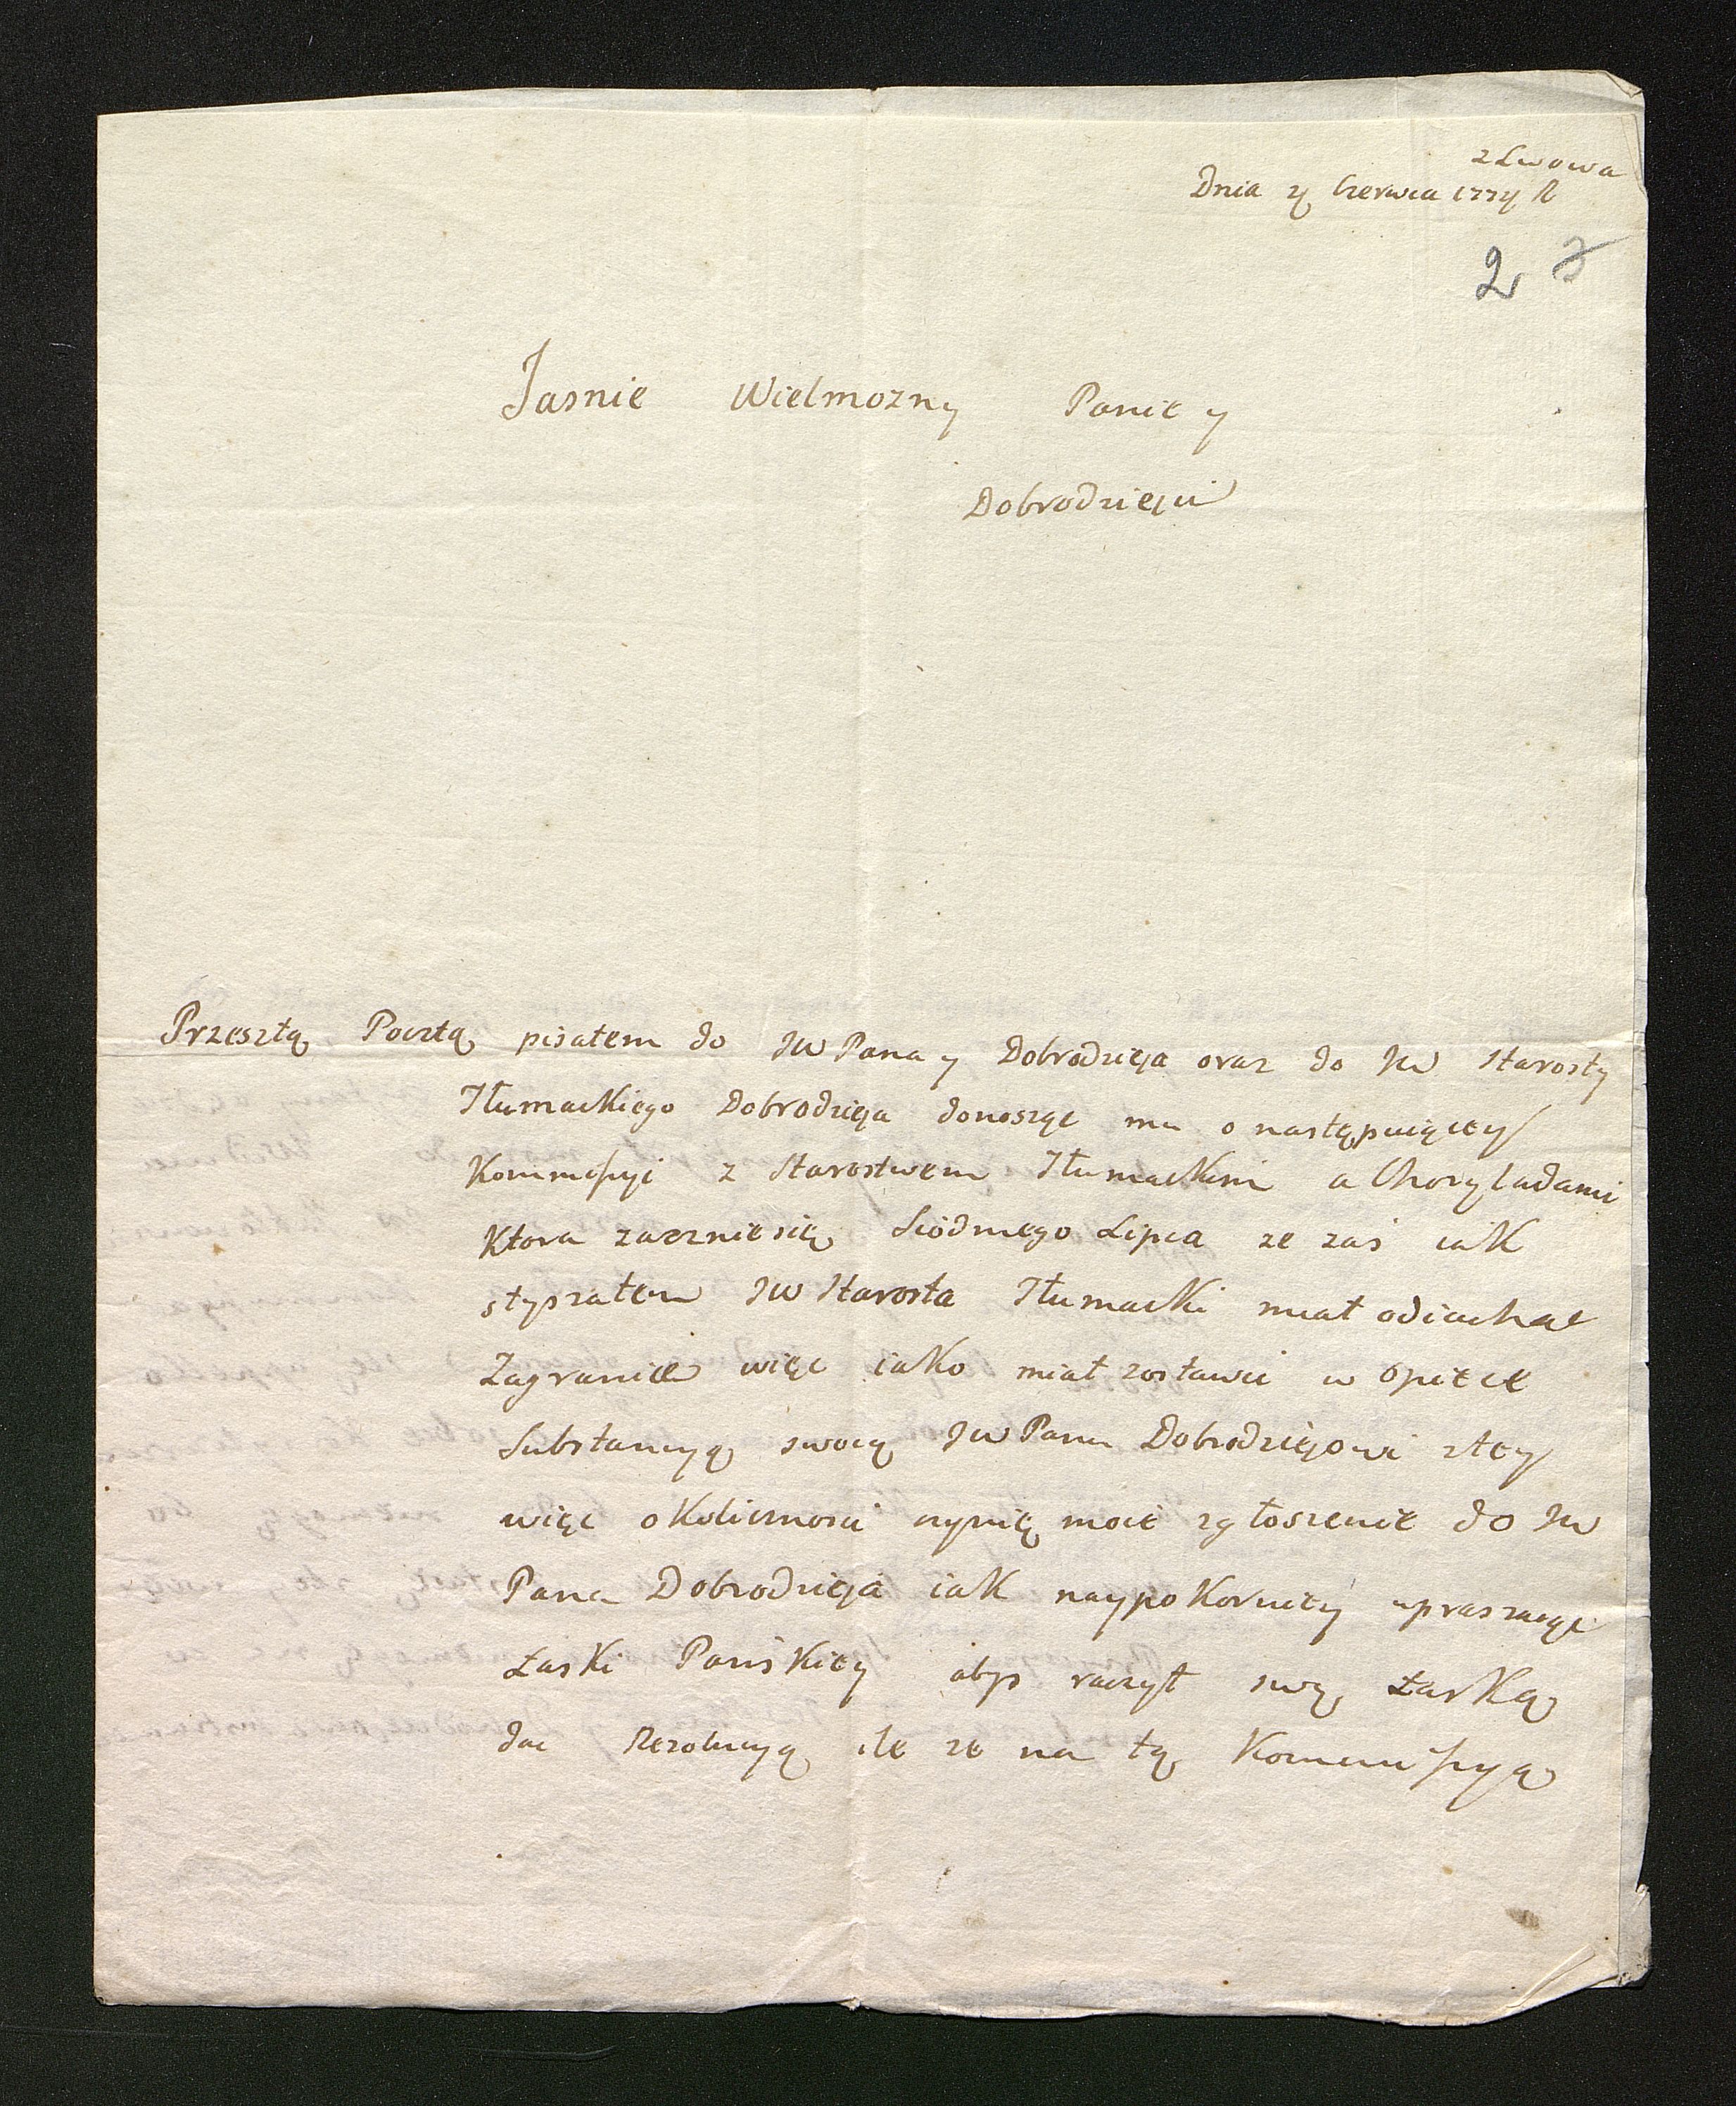 z Lwowa
Dnia 24 Czerwca 1774 R
2
Jasnie Wielmozny Panie y
Dobrodzieju
Przeszłą Pocztą pisałem do JW Pana y Dobrodzieja oraz do JW Starosty
Tłumackiego Dobrodzieja donosząc mu o następuiącey
Kommissyi z Starostwem Tłumackim a Chorzyladami
Ktora zacznie się Siódmego Lipca ze zaś iak
słyszałem JW Starosta Tłumacki miał odiachać
Zagranice więc iako miał zostawić w opiece
Substancyą swoią JW Panu Dobrodziejowi z tey
więc okoliczności czynię moie zgłoszenie do JW
Pana Dobrodzieja iak naypokorniey upraszaiąc
Łaski Pańskiey abyś raczył swą Łaską
dać Rezolucyą ile ze na tą Kommissyą